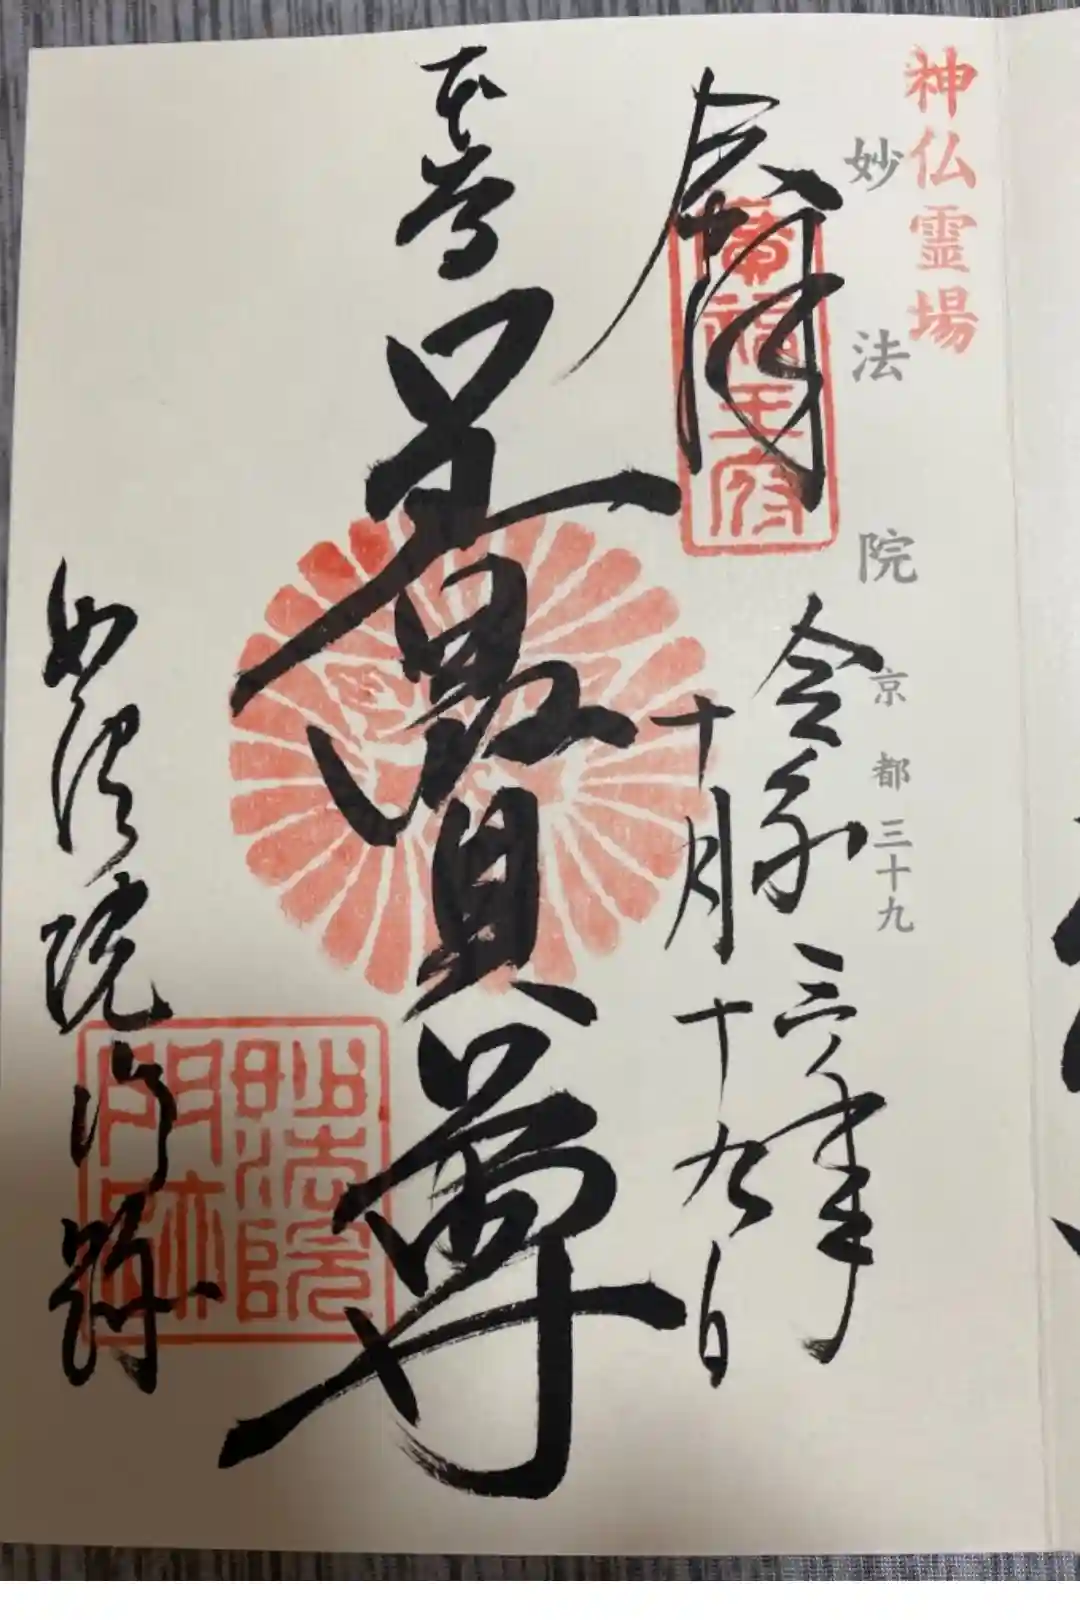 神仏霊場
妙法院 京都 三十九
奉拝
令和三年
十月十九日
本尊
普賢尊
妙法院門跡
妙法院
門跡